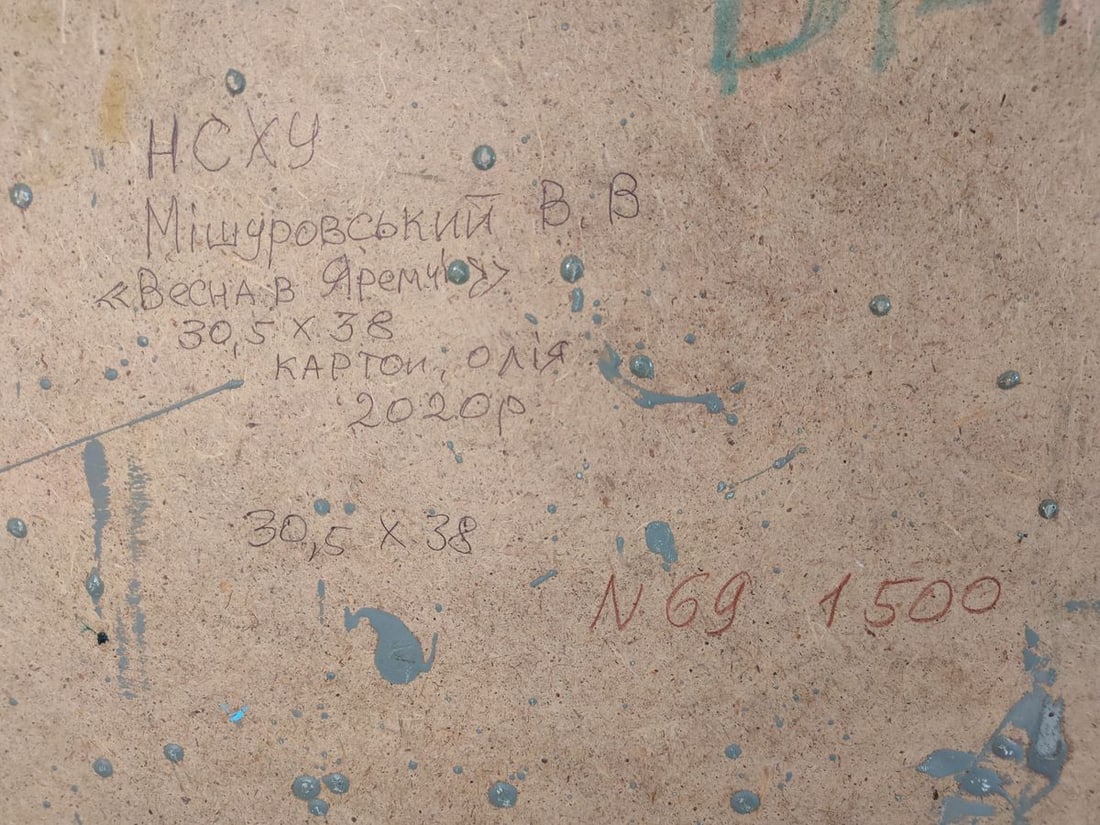 НСХУ
Мішуровський В. В
«Весна в Яремчі»
30,5 х 38
картон, олія
2020р
30,5 х 38
N 69 1500